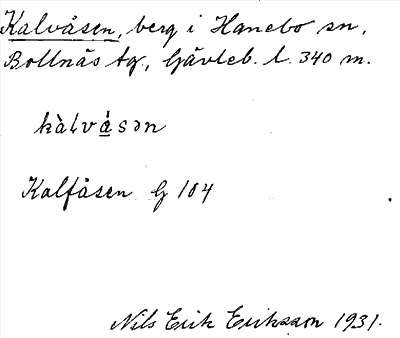 Kalvåsen, berg i Hanebo sn,
Bollnäs tg., Gävleb. l. 340 m.
kàlvå̀sən
Kalfåsen G 104
Nils Erik Eriksson 1931.